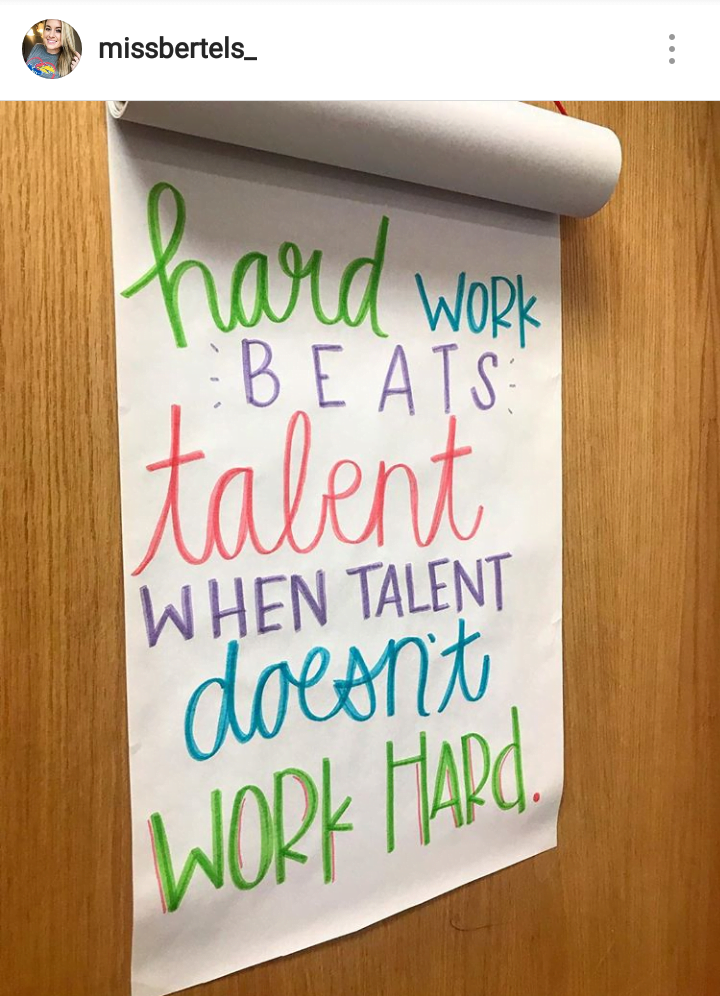 missbertels_
hard WORK
BEATS
talent
WHEN TALENT
doesn't
WORK HARd.